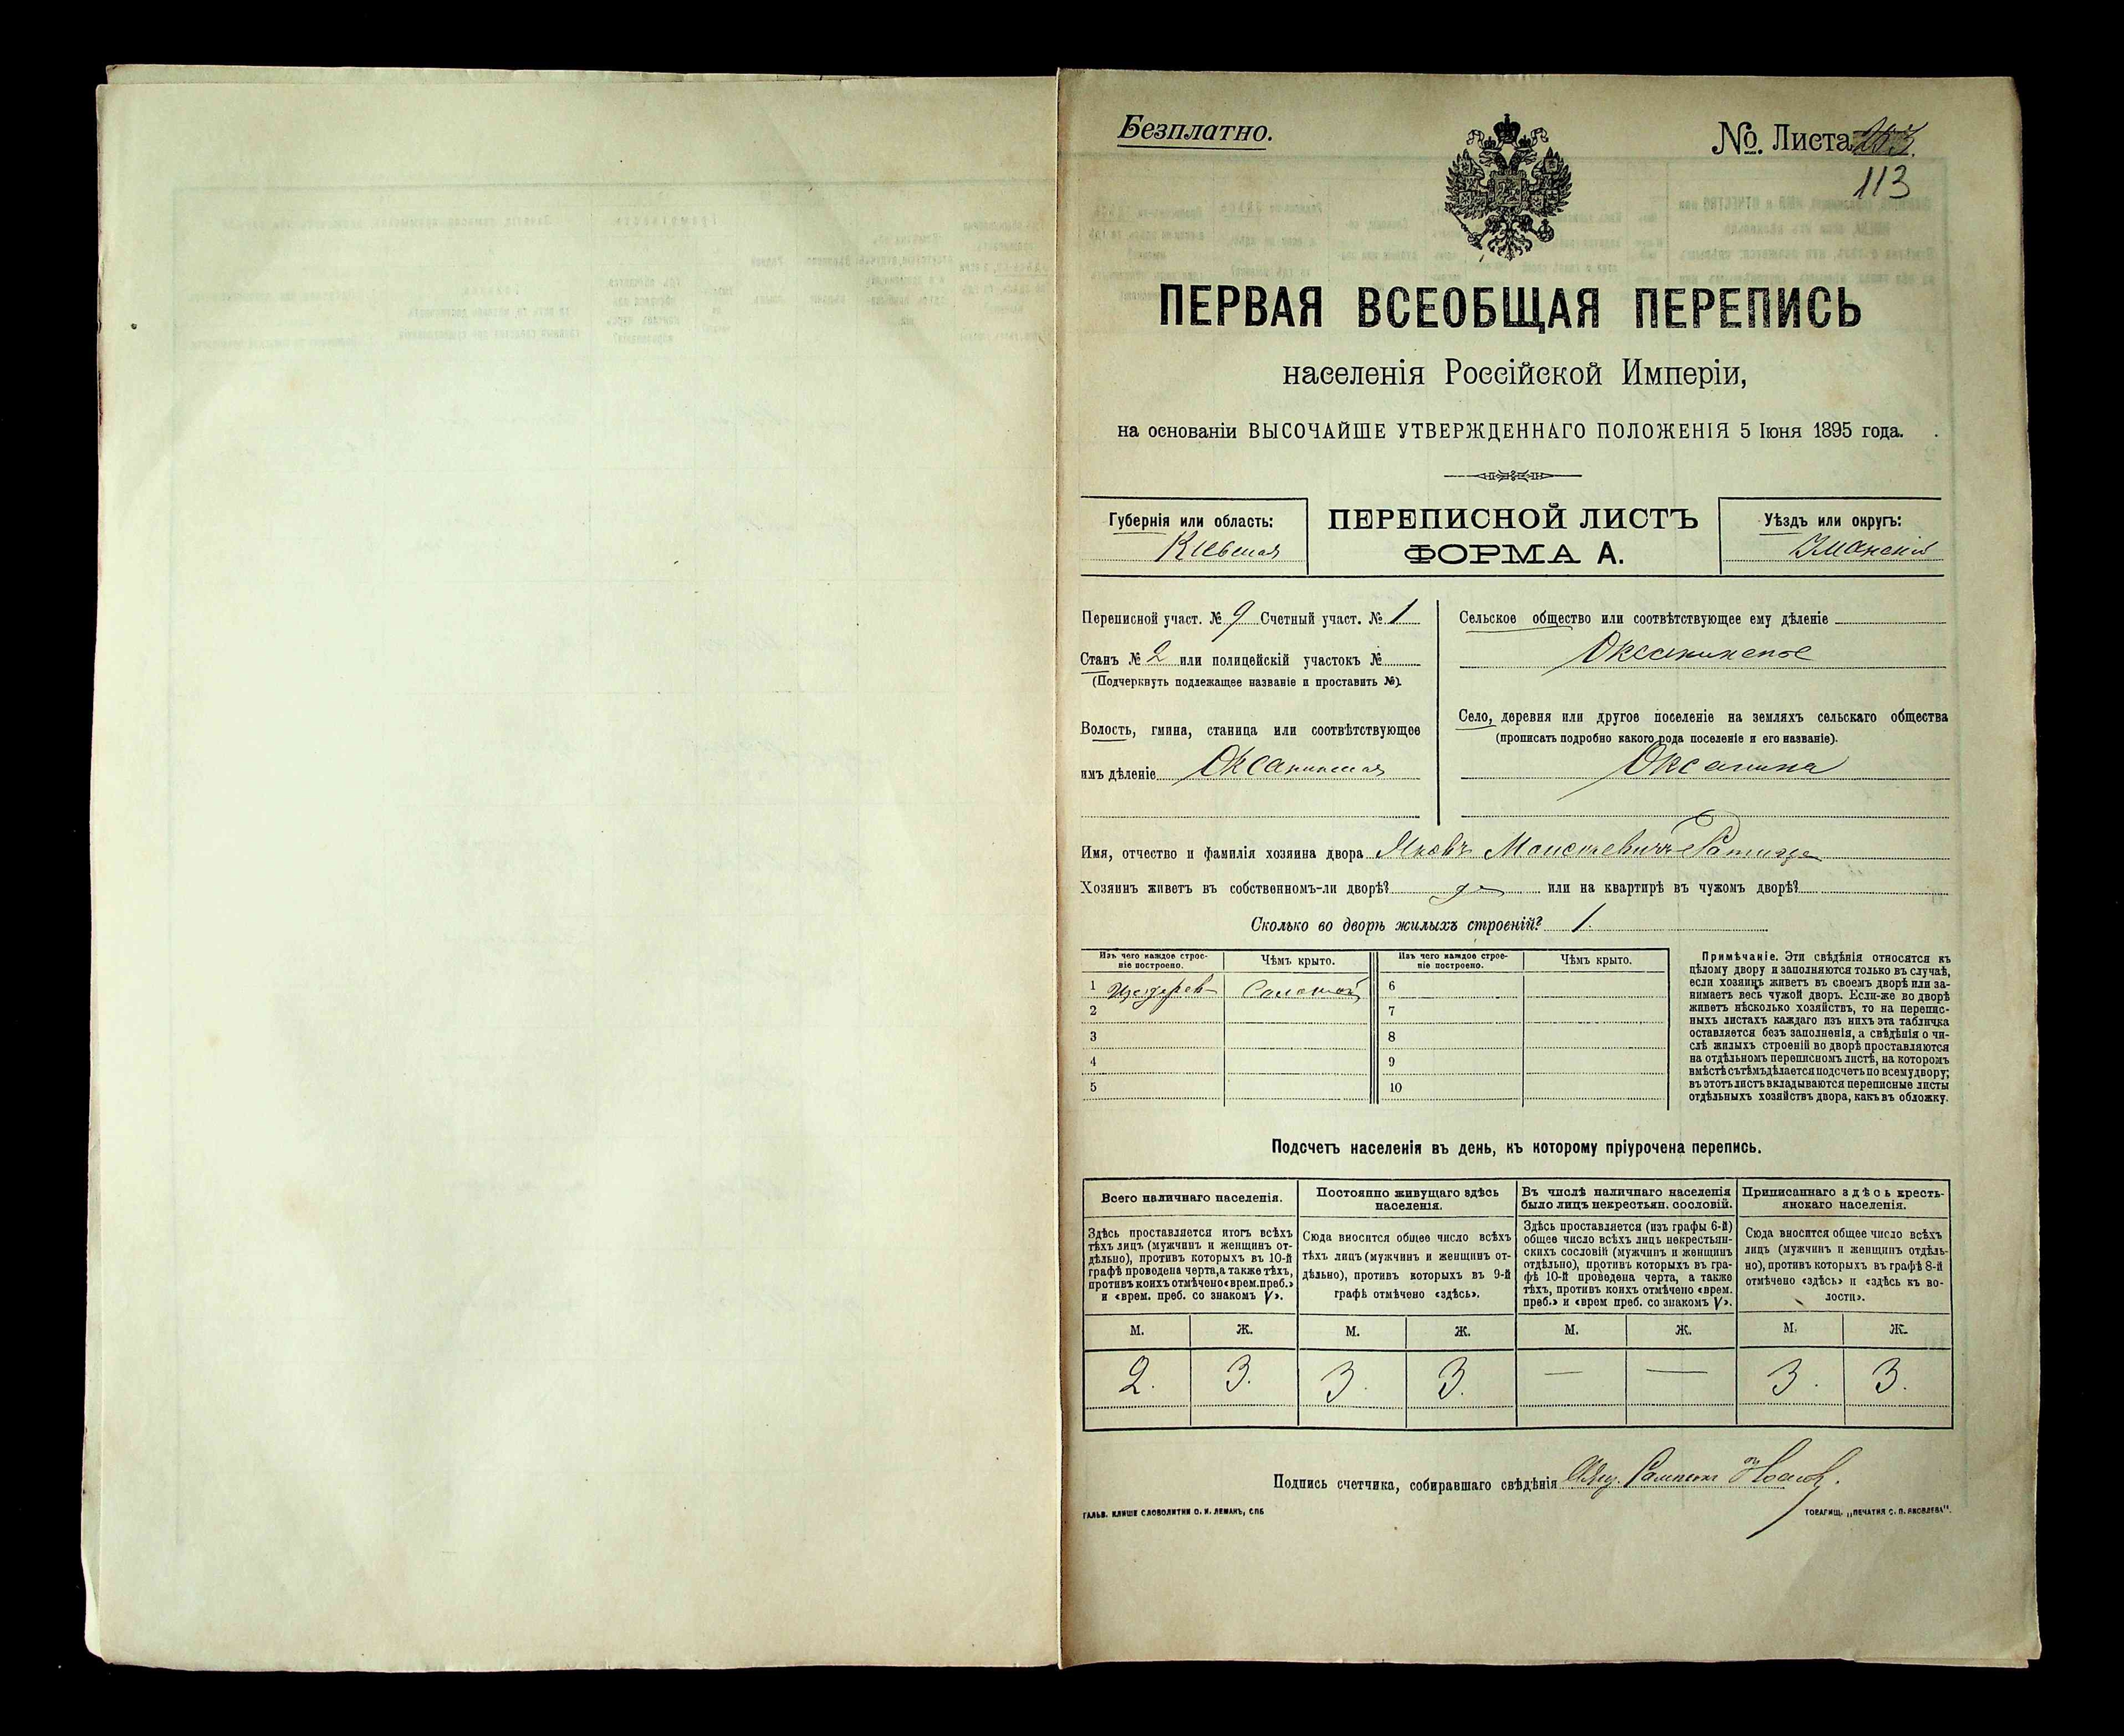 Безплатно.
№. Листа
113
ПЕРВАЯ ВСЕОБЩАЯ ПЕРЕПИСЬ
населенія Россійской Имперіи,
на основаніи ВЫСОЧАЙШЕ УТВЕРЖДЕННАГО ПОЛОЖЕНІЯ 5 Іюня 1895 года.
Губернія или область:
Кіевская
ПЕРЕПИСНОЙ ЛИСТЪ
ФОРМА А.
Уѣздъ или округъ:
Уманскій
Переписной участ. № 9 Счетный участ. № 1
Станъ № 2 или полицейскій участокъ №
(Подчеркнуть подлежащее названіе и проставить №).
Волость, гмина, станица или соотвѣтствующее
имъ дѣленіе Оксанинская
Сельское общество или соотвѣтствующее ему дѣленіе
Оксанинское
Село, деревня или другое поселеніе на земляхъ сельскаго общества
(прописать подробно какого рода поселеніе и его названіе).
Оксанина
Имя, отчество и фамилія хозяина двора Яковъ Моисеевичъ
Хозяинъ живетъ въ собственномъ-ли дворѣ? да или на квартирѣ въ чужомъ дворѣ?
Сколько во дворѣ жилыхъ строеній? 1.
Изъ чего каждое строе-
ніе построено.
Чѣмъ крыто.
Изъ чего каждое строе-
ніе построено.
Чѣмъ крыто.
1 Соломой 6
2 7
3 8
4 9
5 10
Примѣчаніе. Эти свѣдѣнія относятся къ
цѣлому двору и заполняются только въ случаѣ,
если хозяинъ живетъ въ своемъ дворѣ или за-
нимаетъ весь чужой дворъ. Если-же во дворѣ
живетъ нѣсколько хозяйствъ, то на перепис-
ныхъ листахъ каждаго изъ нихъ эта табличка
оставляется безъ заполненія, а свѣдѣнія о чи-
слѣ жилыхъ строеній во дворѣ проставляются
на отдѣльномъ переписномъ листѣ, на которомъ
вмѣстѣ съ тѣмъ дѣлается подсчетъ по всему двору;
въ этотъ листъ вкладываются переписные листы
отдѣльныхъ хозяйствъ двора, какъ въ обложку.
Подсчетъ населенія въ день, къ которому пріурочена перепись.
Всего наличнаго населенія.
Здѣсь проставляется итогъ всѣхъ
тѣхъ лицъ (мужчинъ и женщинъ от-
дѣльно), противъ которыхъ въ 10-й
графѣ проведена черта, а также тѣхъ,
противъ коихъ отмѣчено «врем. преб.»
и «врем. преб. со знакомъ V».
Постоянно живущаго здѣсь
населенія.
Сюда вносится общее число всѣхъ
тѣхъ лицъ (мужчинъ и женщинъ от-
дѣльно), противъ которыхъ въ 9-й
графѣ отмѣчено «здѣсь».
Въ числѣ наличнаго населенія
было лицъ некрестьян. сословій.
Здѣсь проставляется (изъ графы 6-й)
общее число всѣхъ лицъ некрестьян-
скихъ сословій (мужчинъ и женщинъ
отдѣльно), противъ которыхъ въ гра-
фѣ 10-й проведена черта, а также
тѣхъ, противъ коихъ отмѣчено «врем.
преб.» и «врем преб. со знакомъ V».
Приписаннаго здѣсь кресть-
янскаго населенія.
Сюда вносится общее число всѣхъ
лицъ (мужчинъ и женщинъ отдѣль-
но), противъ которыхъ въ графѣ 8-й
отмѣчено «здѣсь» и «здѣсь къ во-
лости».
М. Ж. М. Ж. М. Ж. М. Ж.
2. 3. 3. 3. — — 3. 3.
Подпись счетчика, собиравшаго свѣдѣнія
ГАЛЬВ. КЛИШЕ СЛОВОЛИТНИ О. И. ЛЕМАНЪ, СПБ
ТОВАРИЩ. „ПЕЧАТНЯ С. П. ЯКОВЛЕВА".